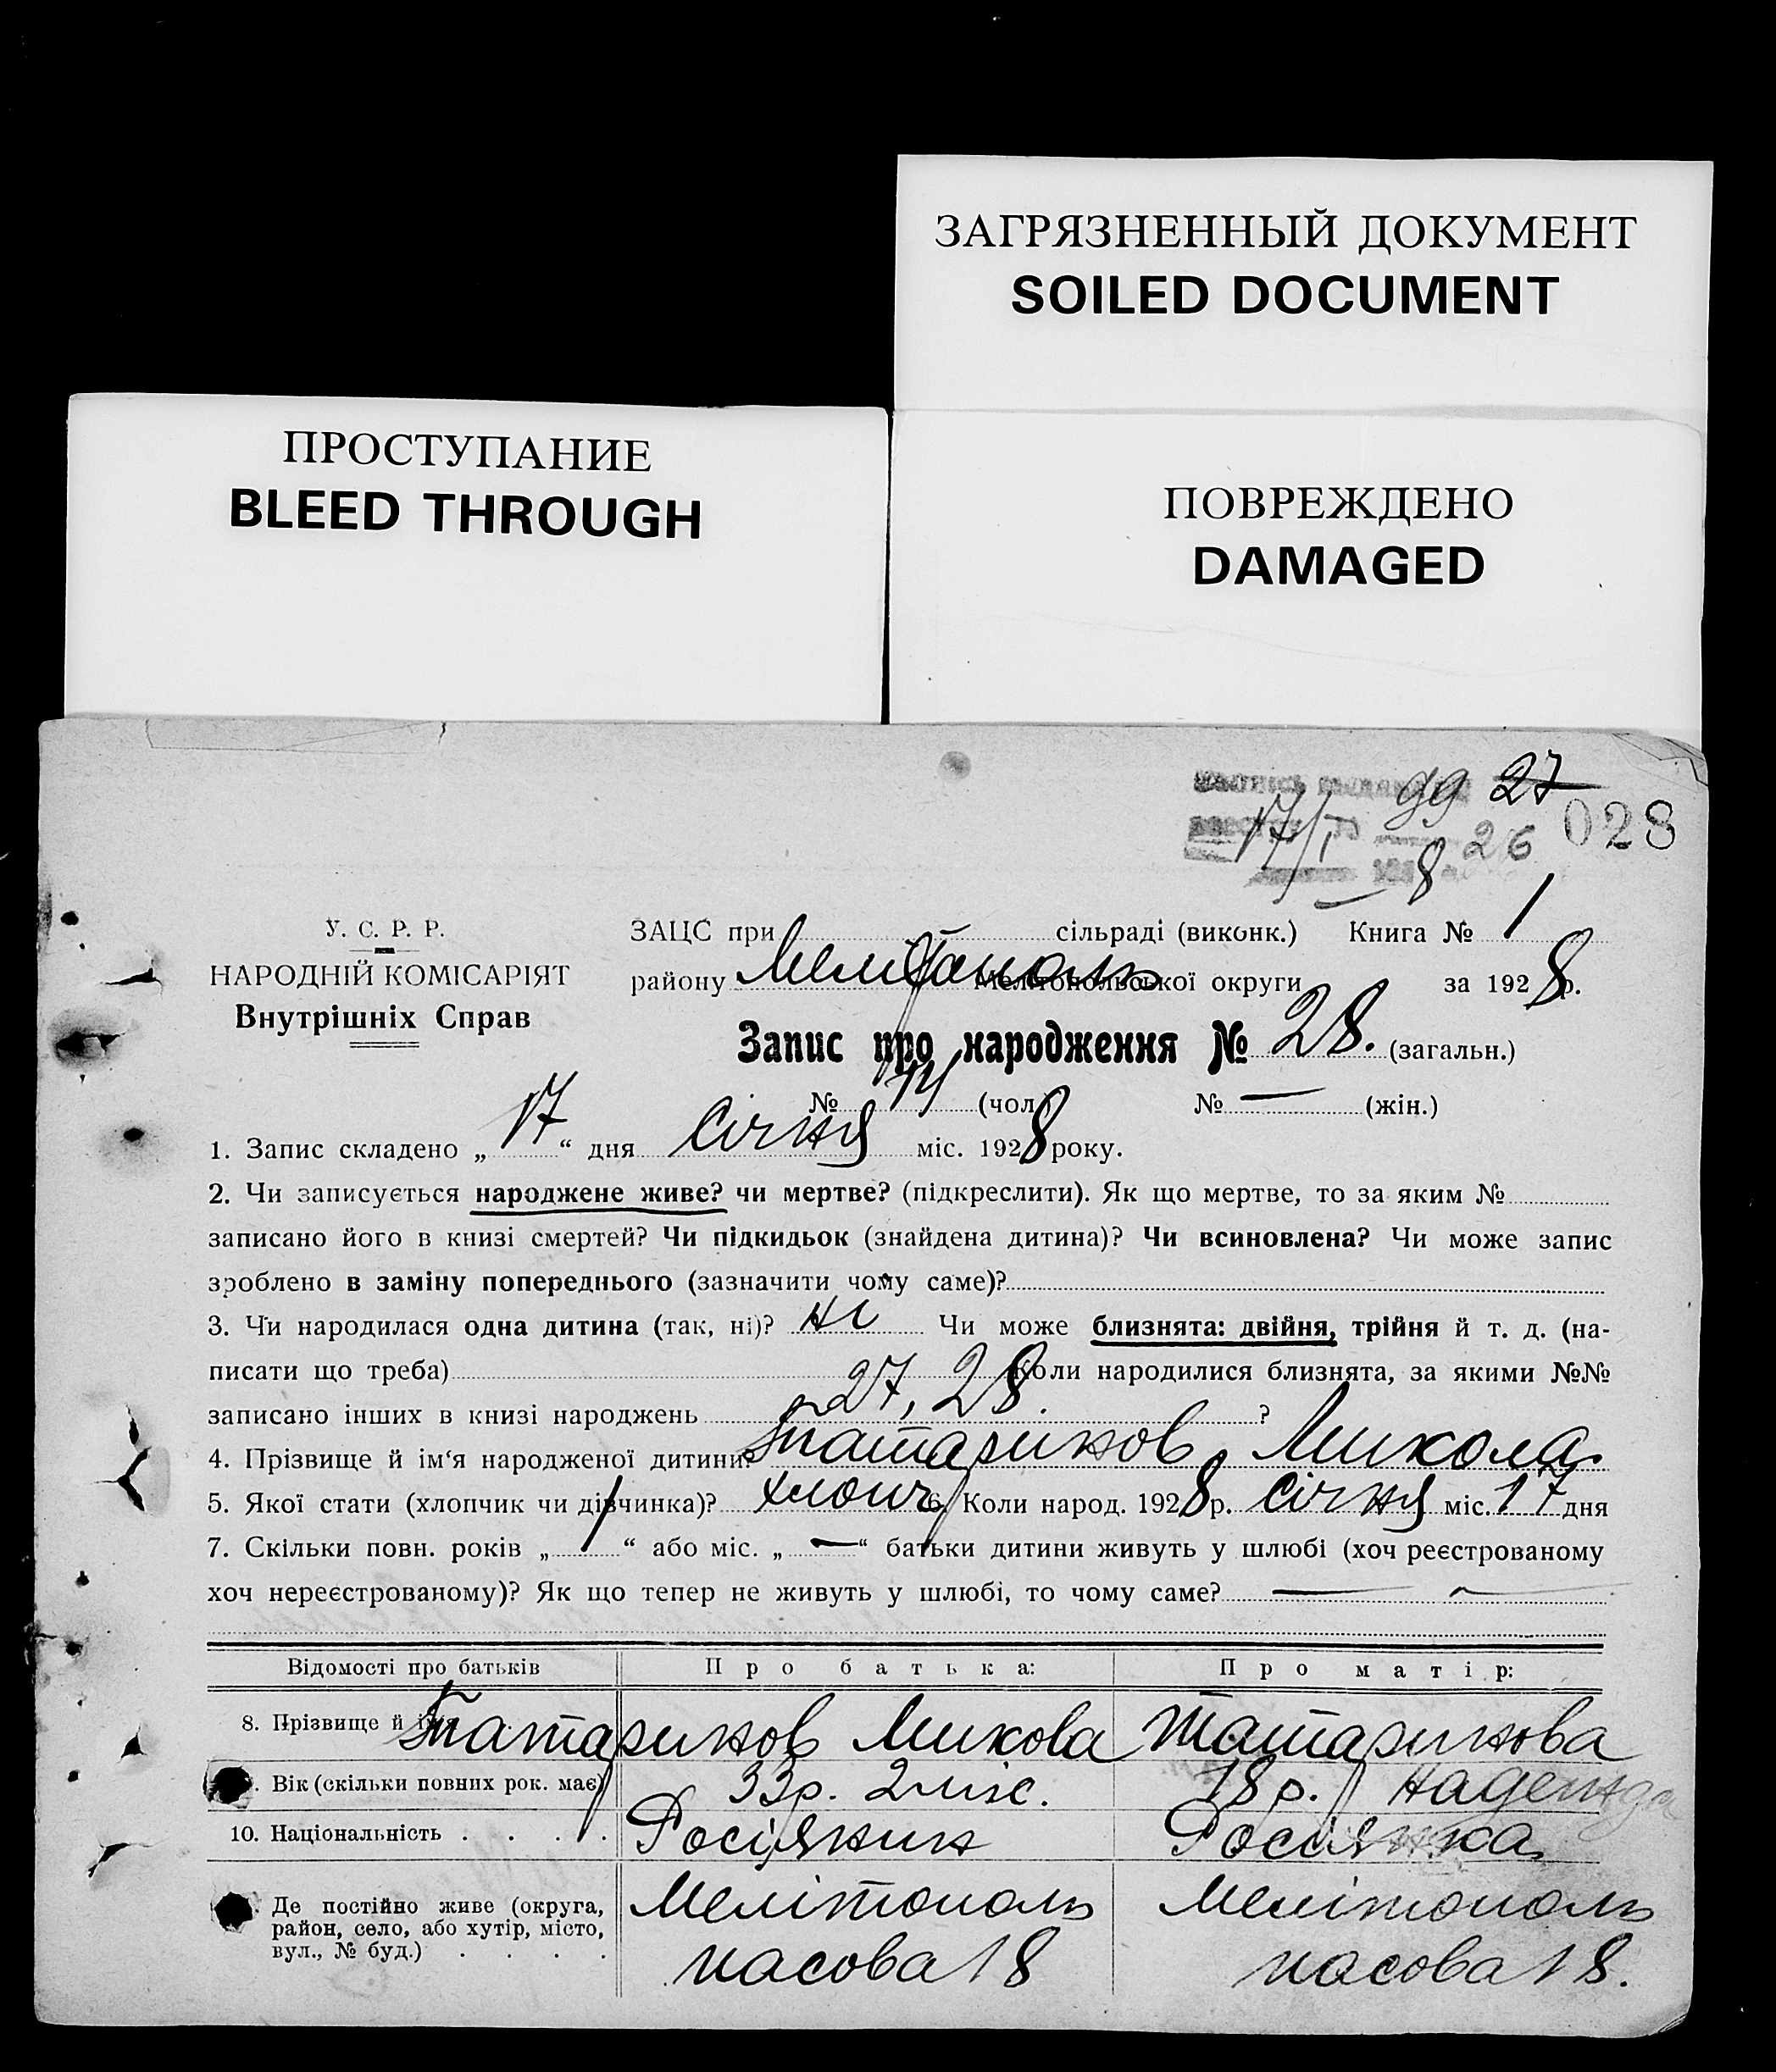 ЗАГРЯЗНЕННЫЙ ДОКУМЕНТ
SOILED DOCUMENT
ПРОСТУПАНИЕ
BLEED THROUGH
ПОВРЕЖДЕНО
DAMAGED
99 27
17/I 26 028
8
У. С. Р. Р.
НАРОДНІЙ КОМІСАРІЯТ
Внутрішніх Справ
ЗАЦС при сільраді (виконк.) Книга № 1
району Мелітополь Мелітопольської округи за 1928 р.
Запис про народження № 28. (загальн.)
№ 14 (чол.) № — (жін.)
1. Запис складено „17“ дня Січня міс. 1928 року.
2. Чи записується народжене живе? чи мертве? (підкреслити). Як що мертве, то за яким №
записано його в книзі смертей? Чи підкидьок (знайдена дитина)? Чи всиновлена? Чи може запис
зроблено в заміну попереднього (зазначити чому саме)?
3. Чи народилася одна дитина (так, ні)? ні Чи може близнята: двійня, трійня й т. д. (на-
писати що треба) Коли народилися близнята, за якими №№
записано інших в книзі народжень 27, 28. ?
4. Прізвище й ім‘я народженої дитини? Татаринов Микола
5. Якої стати (хлопчик чи дівчинка)? хлопч 6. Коли народ. 1928 р. Січня міс. 17 дня
7. Скільки повн. років „1“ або міс. „—“ батьки дитини живуть у шлюбі (хоч реєстрованому
хоч нереєстрованому)? Як що тепер не живуть у шлюбі, то чому саме? —
Відомості про батьків Про батька: Про матір:
8. Прізвище й ім'я Татаринов Микова Татаринова
. Вік (скільки повних рок. має) 33 р. 2 міс. 18 р. Надежда
10. Національність . . . . Росіянин Росіянка
Де постійно живе (округа, район, село, або хутір, місто, вул., № буд.) . . . . Мелітополь Мелітополь
пасова 18 пасова 18.